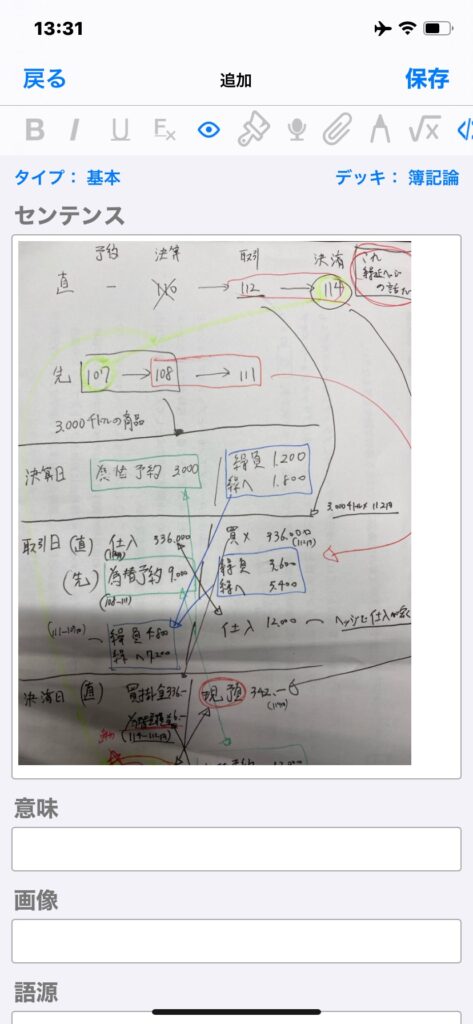 13:31
戻る
追加
保存
B I U Ex √x </
タイプ： 基本
デッキ： 簿記論
センテンス
予約 決算 取引 決済
直 ー 110 → 112 → 114
これ
繰延ヘッジ
の話
先 107 → 108 → 111
3,000千ドルの商品
決算日 為替予約 3,000
繰負 1,200
繰ヘ 1,800
3,000千ドル×112円
取引日 (直) 仕入 336,000
(112円)
買× 336,000
(112円)
(先) 為替予約 9,000
(108-111)
繰負 3,600
繰ヘ 5,400
(111-107円)
繰負 4,800
繰ヘ 7,200
仕入 12,000 ー ヘッジで仕入が
決済日 (直) 買掛金 336.-
現預 342.-
(114円)
為替差損益 6.-
(114-112円)
意味
画像
語源